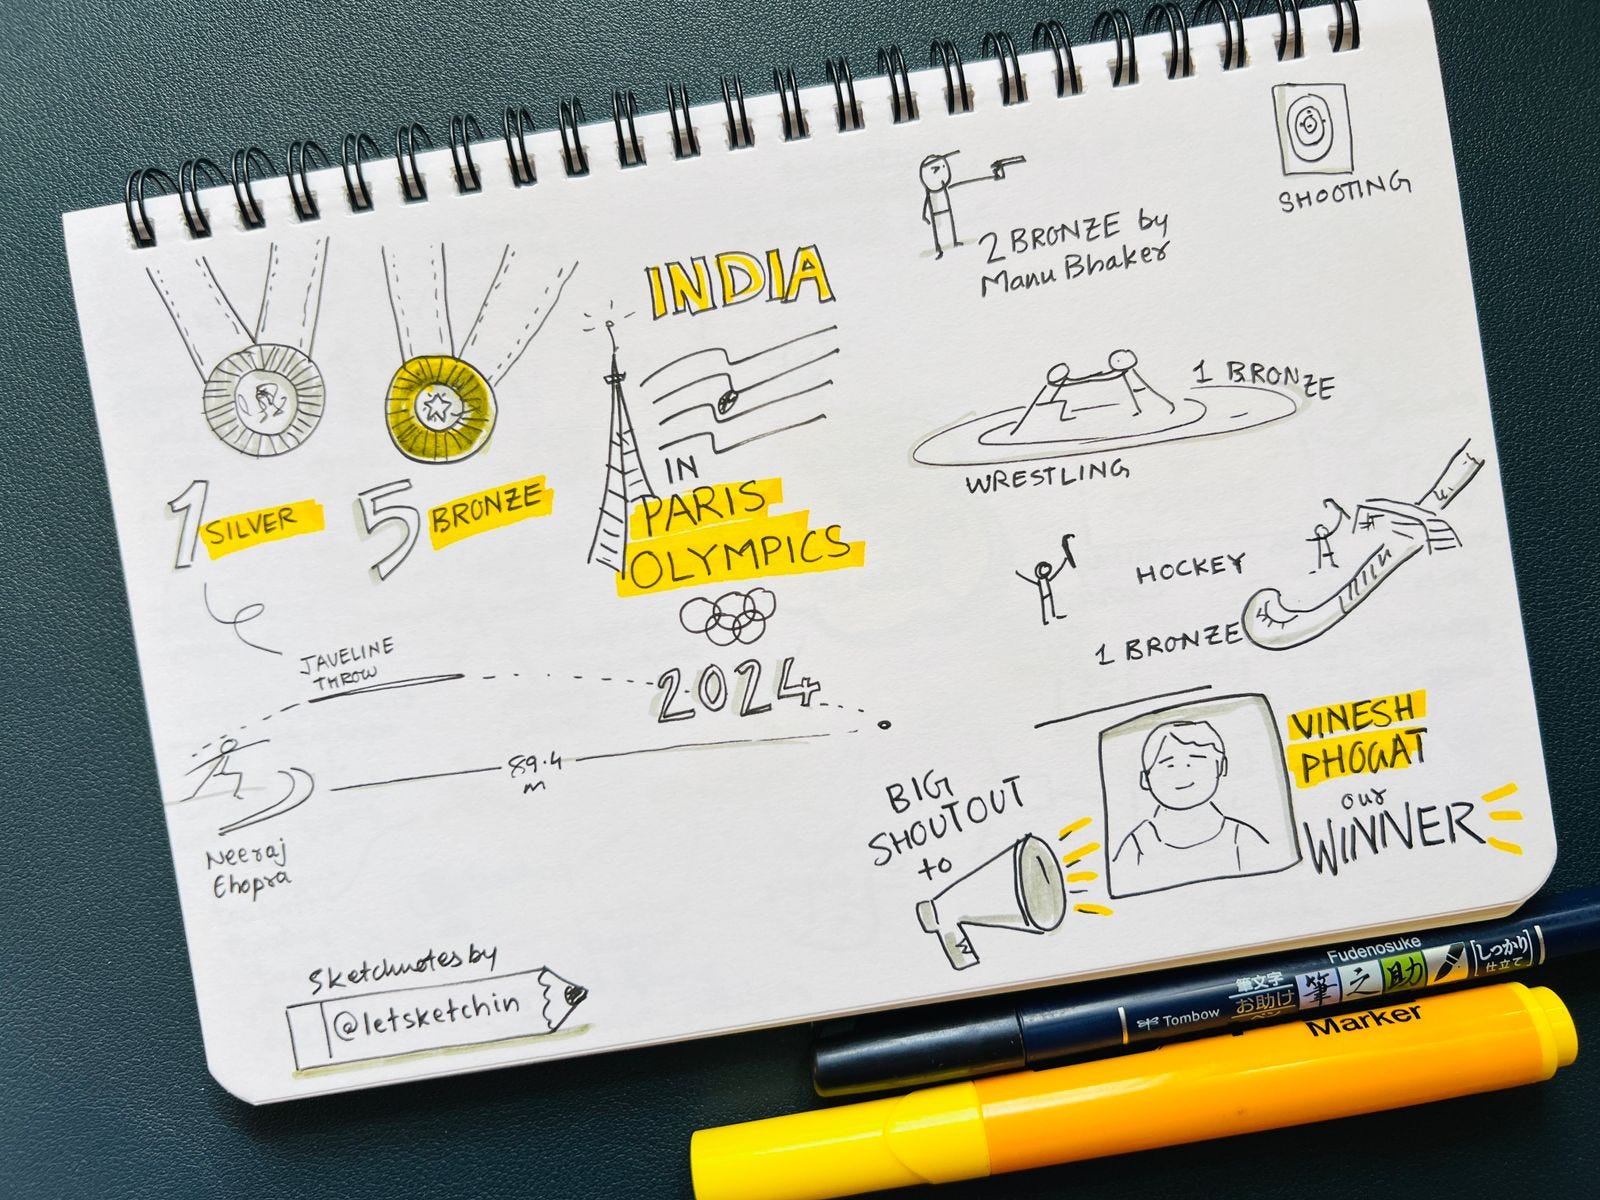 INDIA
IN
PARIS
OLYMPICS
2024
1 SILVER
5 BRONZE
JAVELINE
THROW
89.4
m
Neeraj
Chopra
2 BRONZE by
Manu Bhaker
SHOOTING
1 BRONZE
WRESTLING
HOCKEY
1 BRONZE
BIG
SHOUTOUT
to
VINESH
PHOGAT
our
WINNER
Sketchnotes by
@letsketchin
Fudenosuke
Tombow
筆文字
お助け
ペン
筆之助
しっかり
仕立て
Marker